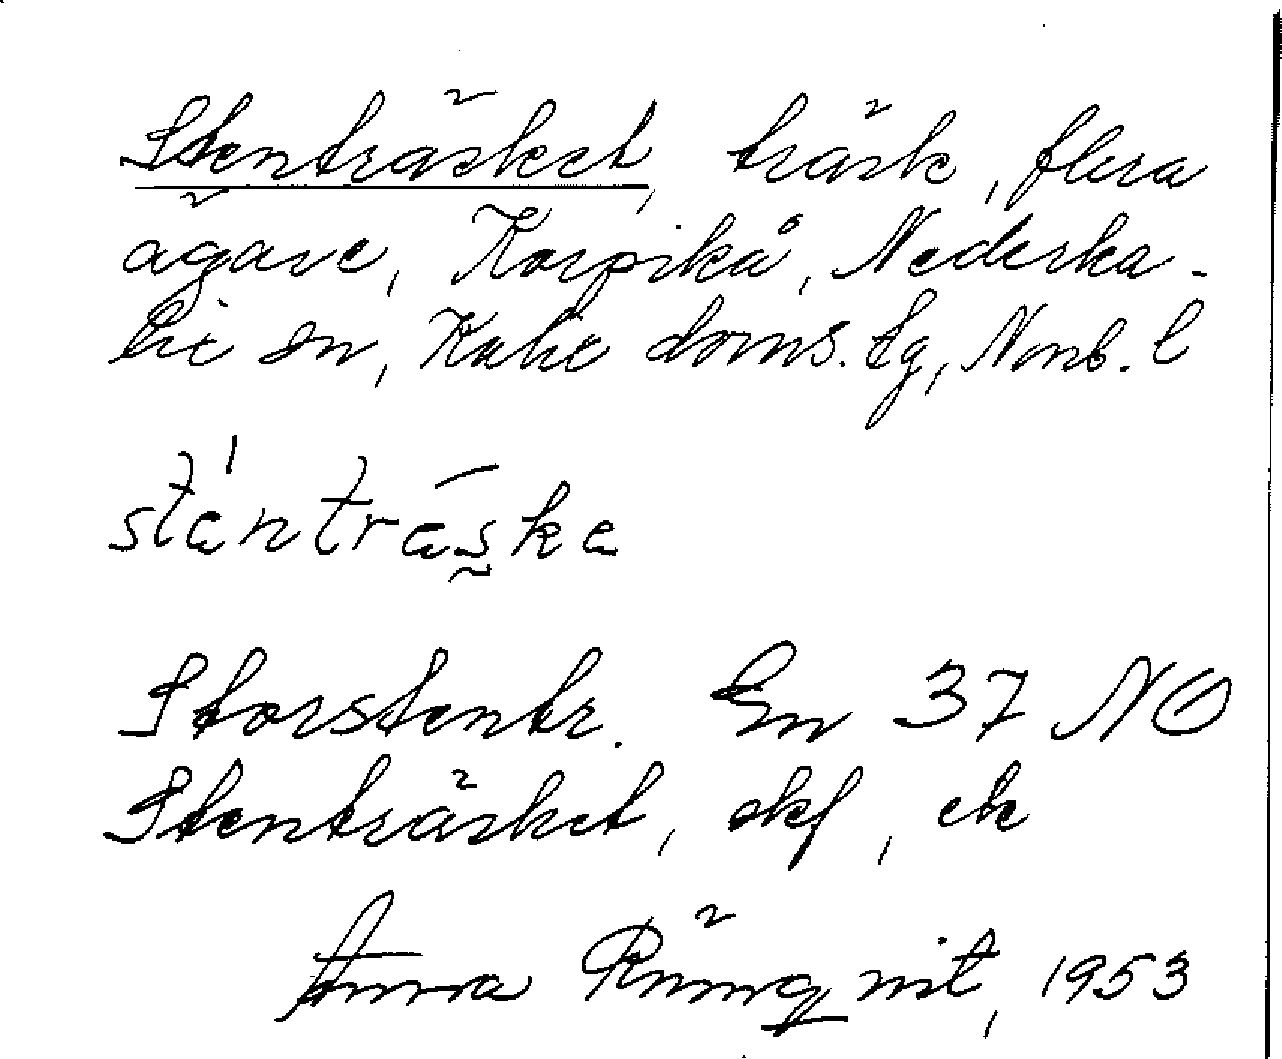 Stenträsket, träsk, flera
ägare, Korpikå, Nederka-
lix sn, Kalix doms. tg, Norrb. l
stænträske
Storstentr. En 37 NO
Stenträsket, ekf, ek
Anna Rönnqvist, 1953